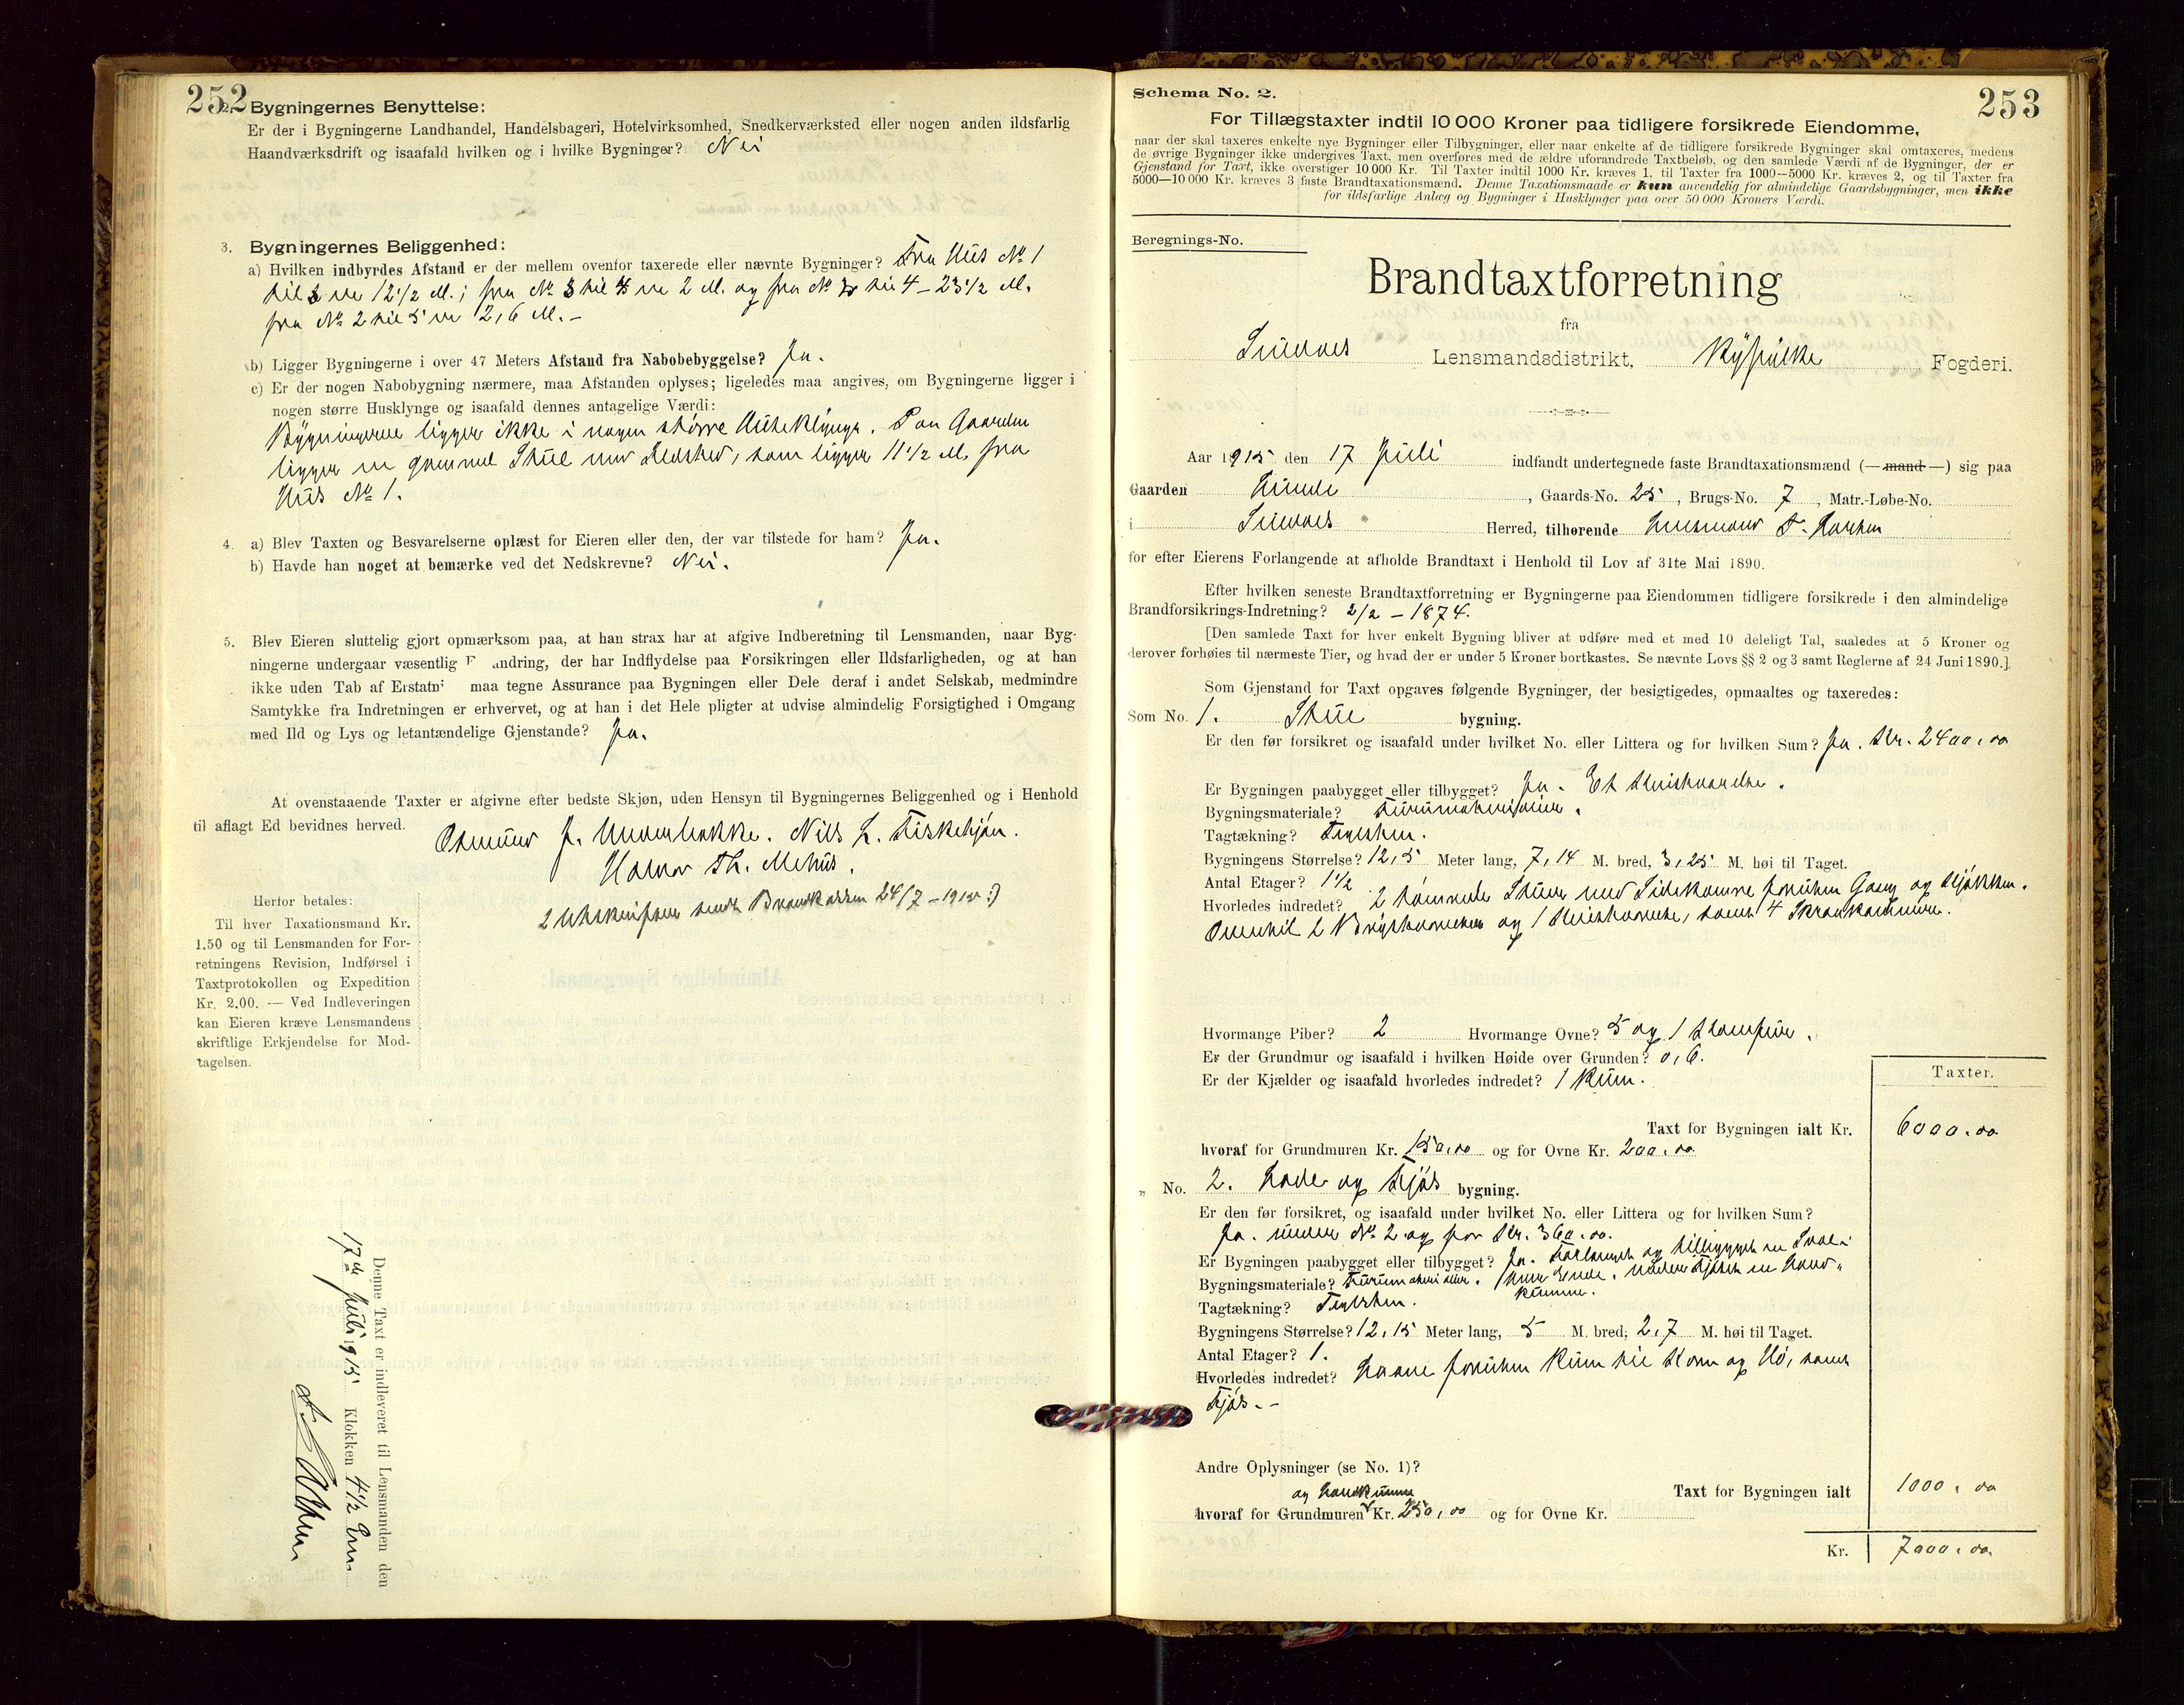 252
2. Bygningernes Benyttelse:
Er der i Bygningerne Landhandel, Handelsbageri, Hotelvirksomhed, Snedkerværksted eller nogen anden ildsfarlig
Haandværksdrift og isaafald hvilken og i hvilke Bygninger? Nei
3. Bygningernes Beliggenhed:
a) Hvilken indbyrdes Afstand er der mellem ovenfor taxerede eller nævnte Bygninger? Fra Hus No 1
til 2 er 12 1/2 M.; fra No 3 til 4 er 2 M. og fra No til 4 - 23 1/2 M.
fra No 2 til 5 er 2,6 M. -
b) Ligger Bygningerne i over 47 Meters Afstand fra Nabobebyggelse? Ja.
c) Er der nogen Nabobygning nærmere, maa Afstanden oplyses; ligeledes maa angives, om Bygningerne ligger i
nogen større Husklynge og isaafald dennes antagelige Værdi:
Bygningerne ligger ikke i nogen større Huseklynge. Paa Gaarden
ligger en gammel Stue med Ildsted, som ligger 11 1/2 M. fra
Hus No 1.
4. a) Blev Taxten og Besvarelserne oplæst for Eieren eller den, der var tilstede for ham? Ja.
b) Havde han noget at bemærke ved det Nedskrevne? Nei.
5. Blev Eieren sluttelig gjort opmærksom paa, at han strax har at afgive Indberetning til Lensmanden, naar Byg-
ningerne undergaar væsentlig F andring, der har Indflydelse paa Forsikringen eller Ildsfarligheden, og at han
ikke uden Tab af Erstatni maa tegne Assurance paa Bygningen eller Dele deraf i andet Selskab, medmindre
Samtykke fra Indretningen er erhvervet, og at han i det Hele pligter at udvise almindelig Forsigtighed i Omgang
med Ild og Lys og letantændelige Gjenstande? Ja.
At ovenstaaende Taxter er afgivne efter bedste Skjøn, uden Hensyn til Bygningernes Beliggenhed og i Henhold
til aflagt Ed bevidnes herved.
Osmund J. Underbakke. Nils L. Fisketjøn.
Halvor Th. Mehus.
2 Utskrifter sendt Brandkassen 24/7 - 1915
Herfor betales:
Til hver Taxationsmand Kr.
1.50 og til Lensmanden for For-
retningens Revision, Indførsel i
Taxtprotokollen og Expedition
Kr. 2.00. — Ved Indleveringen
kan Eieren kræve Lensmandens
skriftlige Erkjendelse for Mod-
tagelsen.
Denne Taxt er indleveret til Lensmanden den
17de Juli 1915 Klokken 4 1/2 Em
253
Schema No. 2.
For Tillægstaxter indtil 10 000 Kroner paa tidligere forsikrede Eiendomme,
naar der skal taxeres enkelte nye Bygninger eller Tilbygninger, eller naar enkelte af de tidligere forsikrede Bygninger skal omtaxeres, medens
de øvrige Bygninger ikke undergives Taxt, men overføres med de ældre uforandrede Taxtbeløb, og den samlede Værdi af de Bygninger, der er
Gjenstand for Taxt, ikke overstiger 10 000 Kr. Til Taxter indtil 1000 Kr. kræves 1, til Taxter fra 1000—5000 Kr. kræves 2, og til Taxter fra
5000—10 000 Kr. kræves 3 faste Brandtaxationsmænd. Denne Taxationsmaade er kun anvendelig for almindelige Gaardsbygninger, men ikke
for ildsfarlige Anlæg og Bygninger i Husklynger paa over 50 000 Kroners Værdi.
Beregnings-No.
Brandtaxtforretning
fra
Suldal Lensmandsdistrikt, Ryfylke Fogderi.
Aar 1915 den 17 Juli indfandt undertegnede faste Brandtaxationsmænd (— mand —) sig paa
Gaarden Lunde, Gaards-No. 25, Brugs-No. 7, Matr.-Løbe-No.
i Suldal Herred, tilhørende
for efter Eierens Forlangende at afholde Brandtaxt i Henhold til Lov af 31te Mai 1890.
Efter hvilken seneste Brandtaxtforretning er Bygningerne paa Eiendommen tidligere forsikrede i den almindelige
Brandforsikrings-Indretning? 2/2 - 1874.
[Den samlede Taxt for hver enkelt Bygning bliver at udføre med et med 10 deleligt Tal, saaledes at 5 Kroner og
derover forhøies til nærmeste Tier, og hvad der er under 5 Kroner bortkastes. Se nævnte Lovs §§ 2 og 3 samt Reglerne af 24 Juni 1890.]
Som Gjenstand for Taxt opgaves følgende Bygninger, der besigtigedes, opmaaltes og taxeredes:
Som No. 1. Stue bygning.
Er den før forsikret og isaafald under hvilket No. eller Littera og for hvilken Sum? Ja. Kr. 2400.00
Er Bygningen paabygget eller tilbygget? Ja. Et Kvistværelse.
Bygningsmateriale? Furumaterialier.
Tagtækning? Teglsten.
Bygningens Størrelse? 12,5 Meter lang, 7,14 M. bred, 3,25 M. høi til Taget.
Antal Etager? 1 1/2
Hvorledes indredet? 2 tømrede Stuer med Sidekamre foruten Gang og Kjøkken.
Oventil 2 Brystværelser og 1 Kvistværelse, samt 4 Skraakammere.
Hvormange Piber? 2 Hvormange Ovne? 5 og 1 Komfur.
Er der Grundmur og isaafald i hvilken Høide over Grunden? 0,6.
Er der Kjælder og isaafald hvorledes indredet? 1 Rum.
Taxter.
Taxt for Bygningen ialt Kr. 6000.00
hvoraf for Grundmuren Kr. 150.00 og for Ovne Kr. 200.00
„ No. 2. Lade og Fjøs bygning.
Er den før forsikret, og isaafald under hvilket No. eller Littera og for hvilken Sum?
Ja. under No 2 og for Kr. 360.00.
Er Bygningen paabygget eller tilbygget? Ja. Forlænget og tilbygget en Sval i
Bygningsmateriale? Furumaterialier. hver Ende. under Fjøset en Land-
kumme.
Tagtækning? Teglsten.
Bygningens Størrelse? 12,15 Meter lang, 5 M. bred, 2,7 M. høi til Taget.
Antal Etager? 1.
Hvorledes indredet? Laave foruten Rum til Korn og Hø, samt
Fjøs. -
Andre Oplysninger (se No. 1)?
Taxt for Bygningen ialt 1000.00
og Landkumme
hvoraf for Grundmuren Kr. 250,00 og for Ovne Kr.
Kr. 7000.00